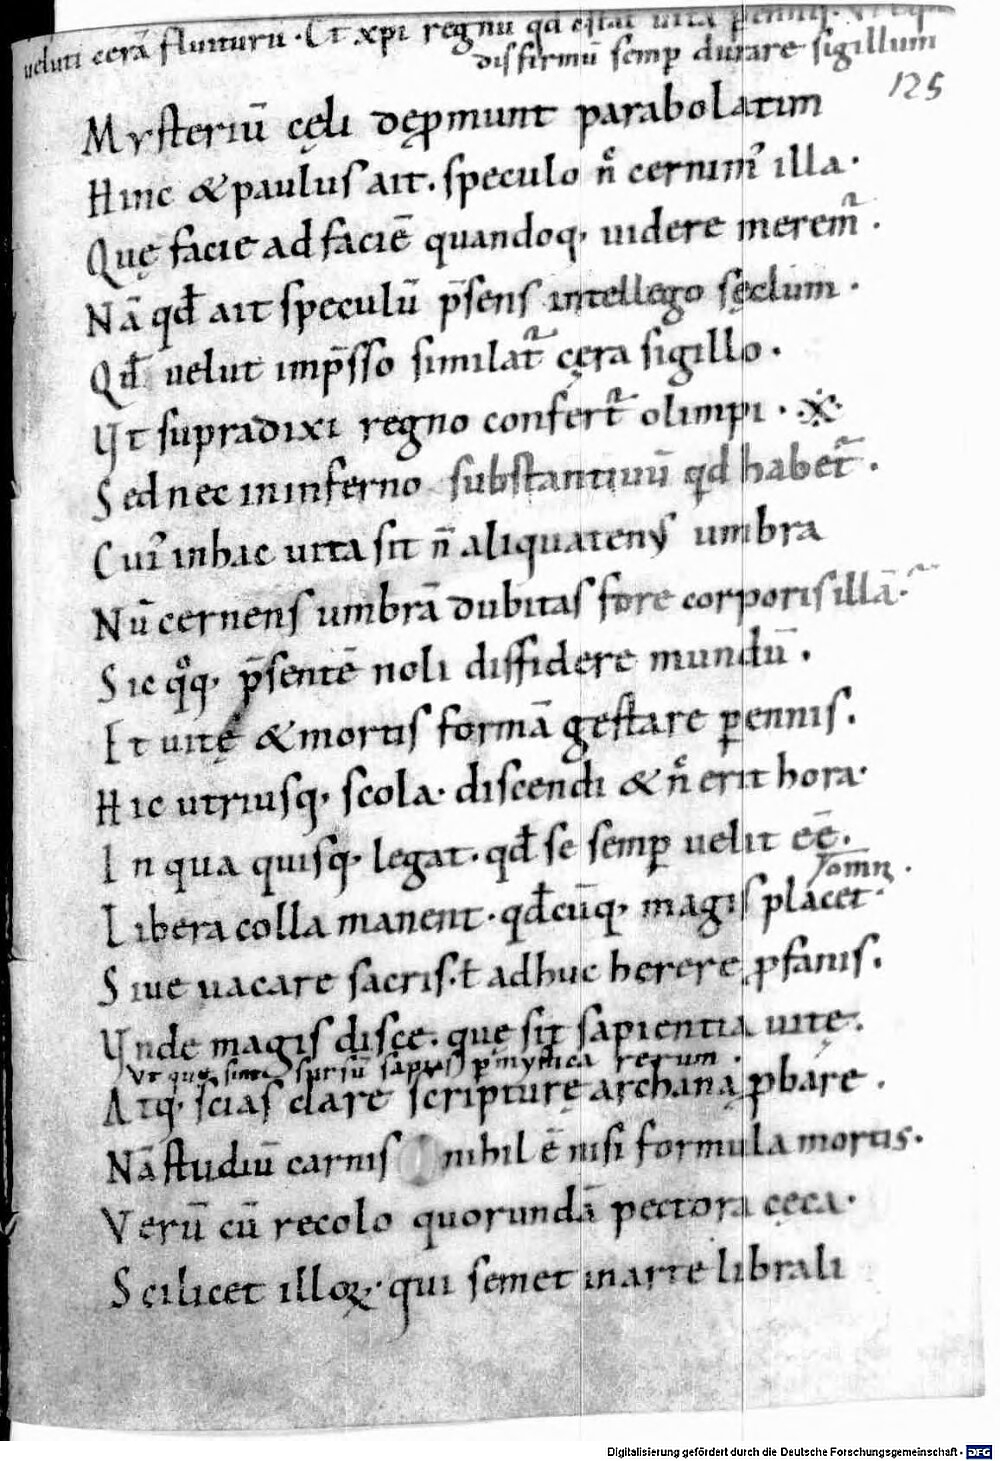 ueluti cerā fluiturū · Et xpi regnū qd
disfirmū semp̄ durare sigillum
125
Mysteriū cęli dep̄munt parabolatim
Hinc & paulus ait. speculo n̄ cernim᷒ illa·
Quę facie ad faciē quandoq· uidere merem᷑ .
Nā qđ ait speculū p̄sens intellego sęclum ·
Qđ uelut imp̄sso similat᷑ cęra sigillo ·
Vt supradixi regno confert᷑ olimpi · ※
Sed nec in inferno substantiuū qd habet᷑ .
Cui᷒ in hac uita sit n̄ aliquatenus umbra
Nū cernens umbrā dubitas fore corporis illā·
Sic qͦq· p̄sentē noli diffidere mundū .
Et uitę & mortis formā gestare ꝑennis .
Hic utriusq· scola · discendi & n̄ erit hora·
In qua quisq· legat · qđ se semꝑ uelit eē .
Libera colla manent · qđcūq· magis placet·
Siue uacare sacris · ł adhuc herere ꝓfanis .
Vnde magis disce · quę sit sapientia uitę .
Vt quę sint spriū sapias ꝑ mystica rerum ·
Atq· scias clare scripturę archana ꝓbare .
Nā studiū carnis nihil ē nisi formula mortis .
Verū cū recolo quorundā pectora cęca ·
Scilicet illoꝝ · qui semet in arte librali
Digitalisierung gefördert durch die Deutsche Forschungsgemeinschaft - DFG